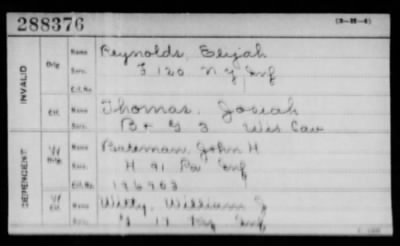 288376
(3-25-6)
INVALID
Orig.
Name Reynolds, Elijah
Serv. F 120 N Y Inf
Ctf. No.
Ctf.
Name Thomas, Josiah
Serv. B + G 3 Wis Cav
DEPENDENT
W Orig.
Name Bateman John H
Serv. H 91 Pa Inf
Ctf. No. 196963
W Ctf.
Name Willy, William J
Serv. G 17 Ky Inf